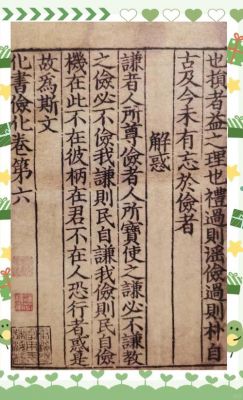 也損者益之理也禮過則淫儉過則朴自
古及今未有志於儉者
解惑
謙者人所尊儉者人所寶使之謙必不謙教
之儉必不儉我謙則民自謙我儉則民自儉
機在此不在彼柄在君不在人恐行者惑是
故爲斯文
化書儉化卷第六